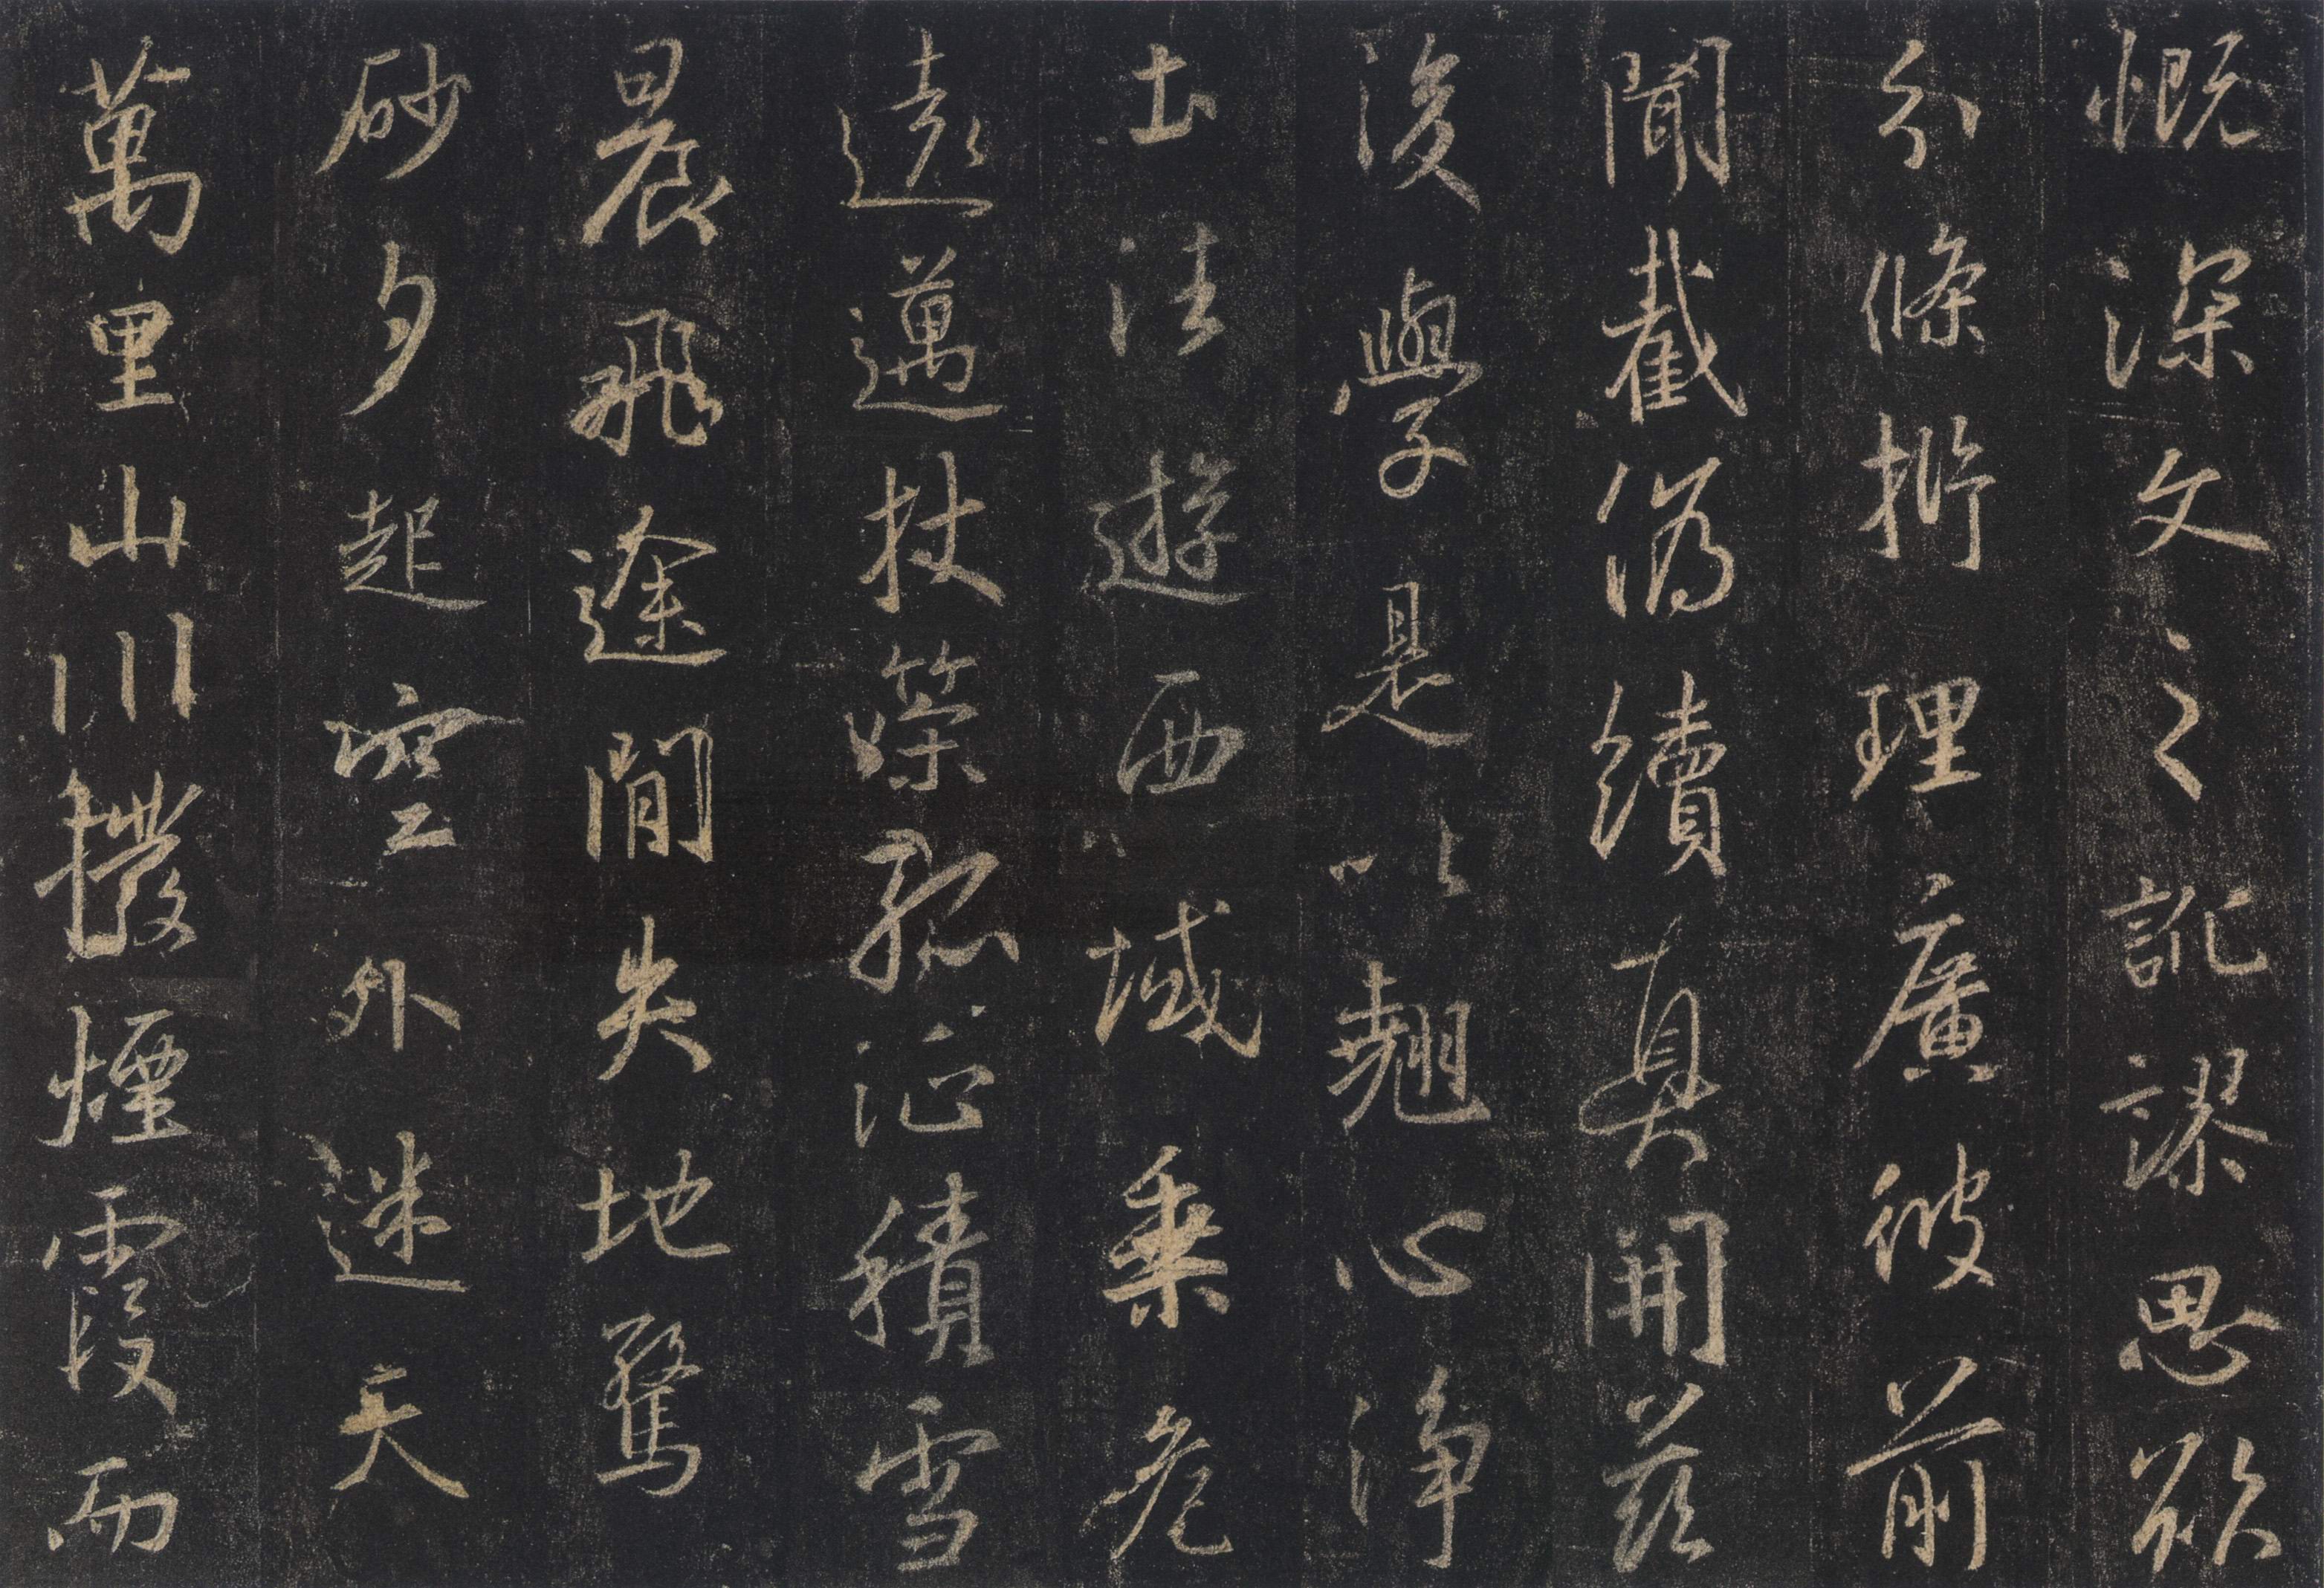 慨深文之訛謬思欲
分條析理廣彼前
聞截偽續真開茲
後學是以翹心淨
土法遊西域乘危
遠邁杖策孤征積雪
晨飛途間失地驚
砂夕起空外迷天
萬里山川撥煙霞而